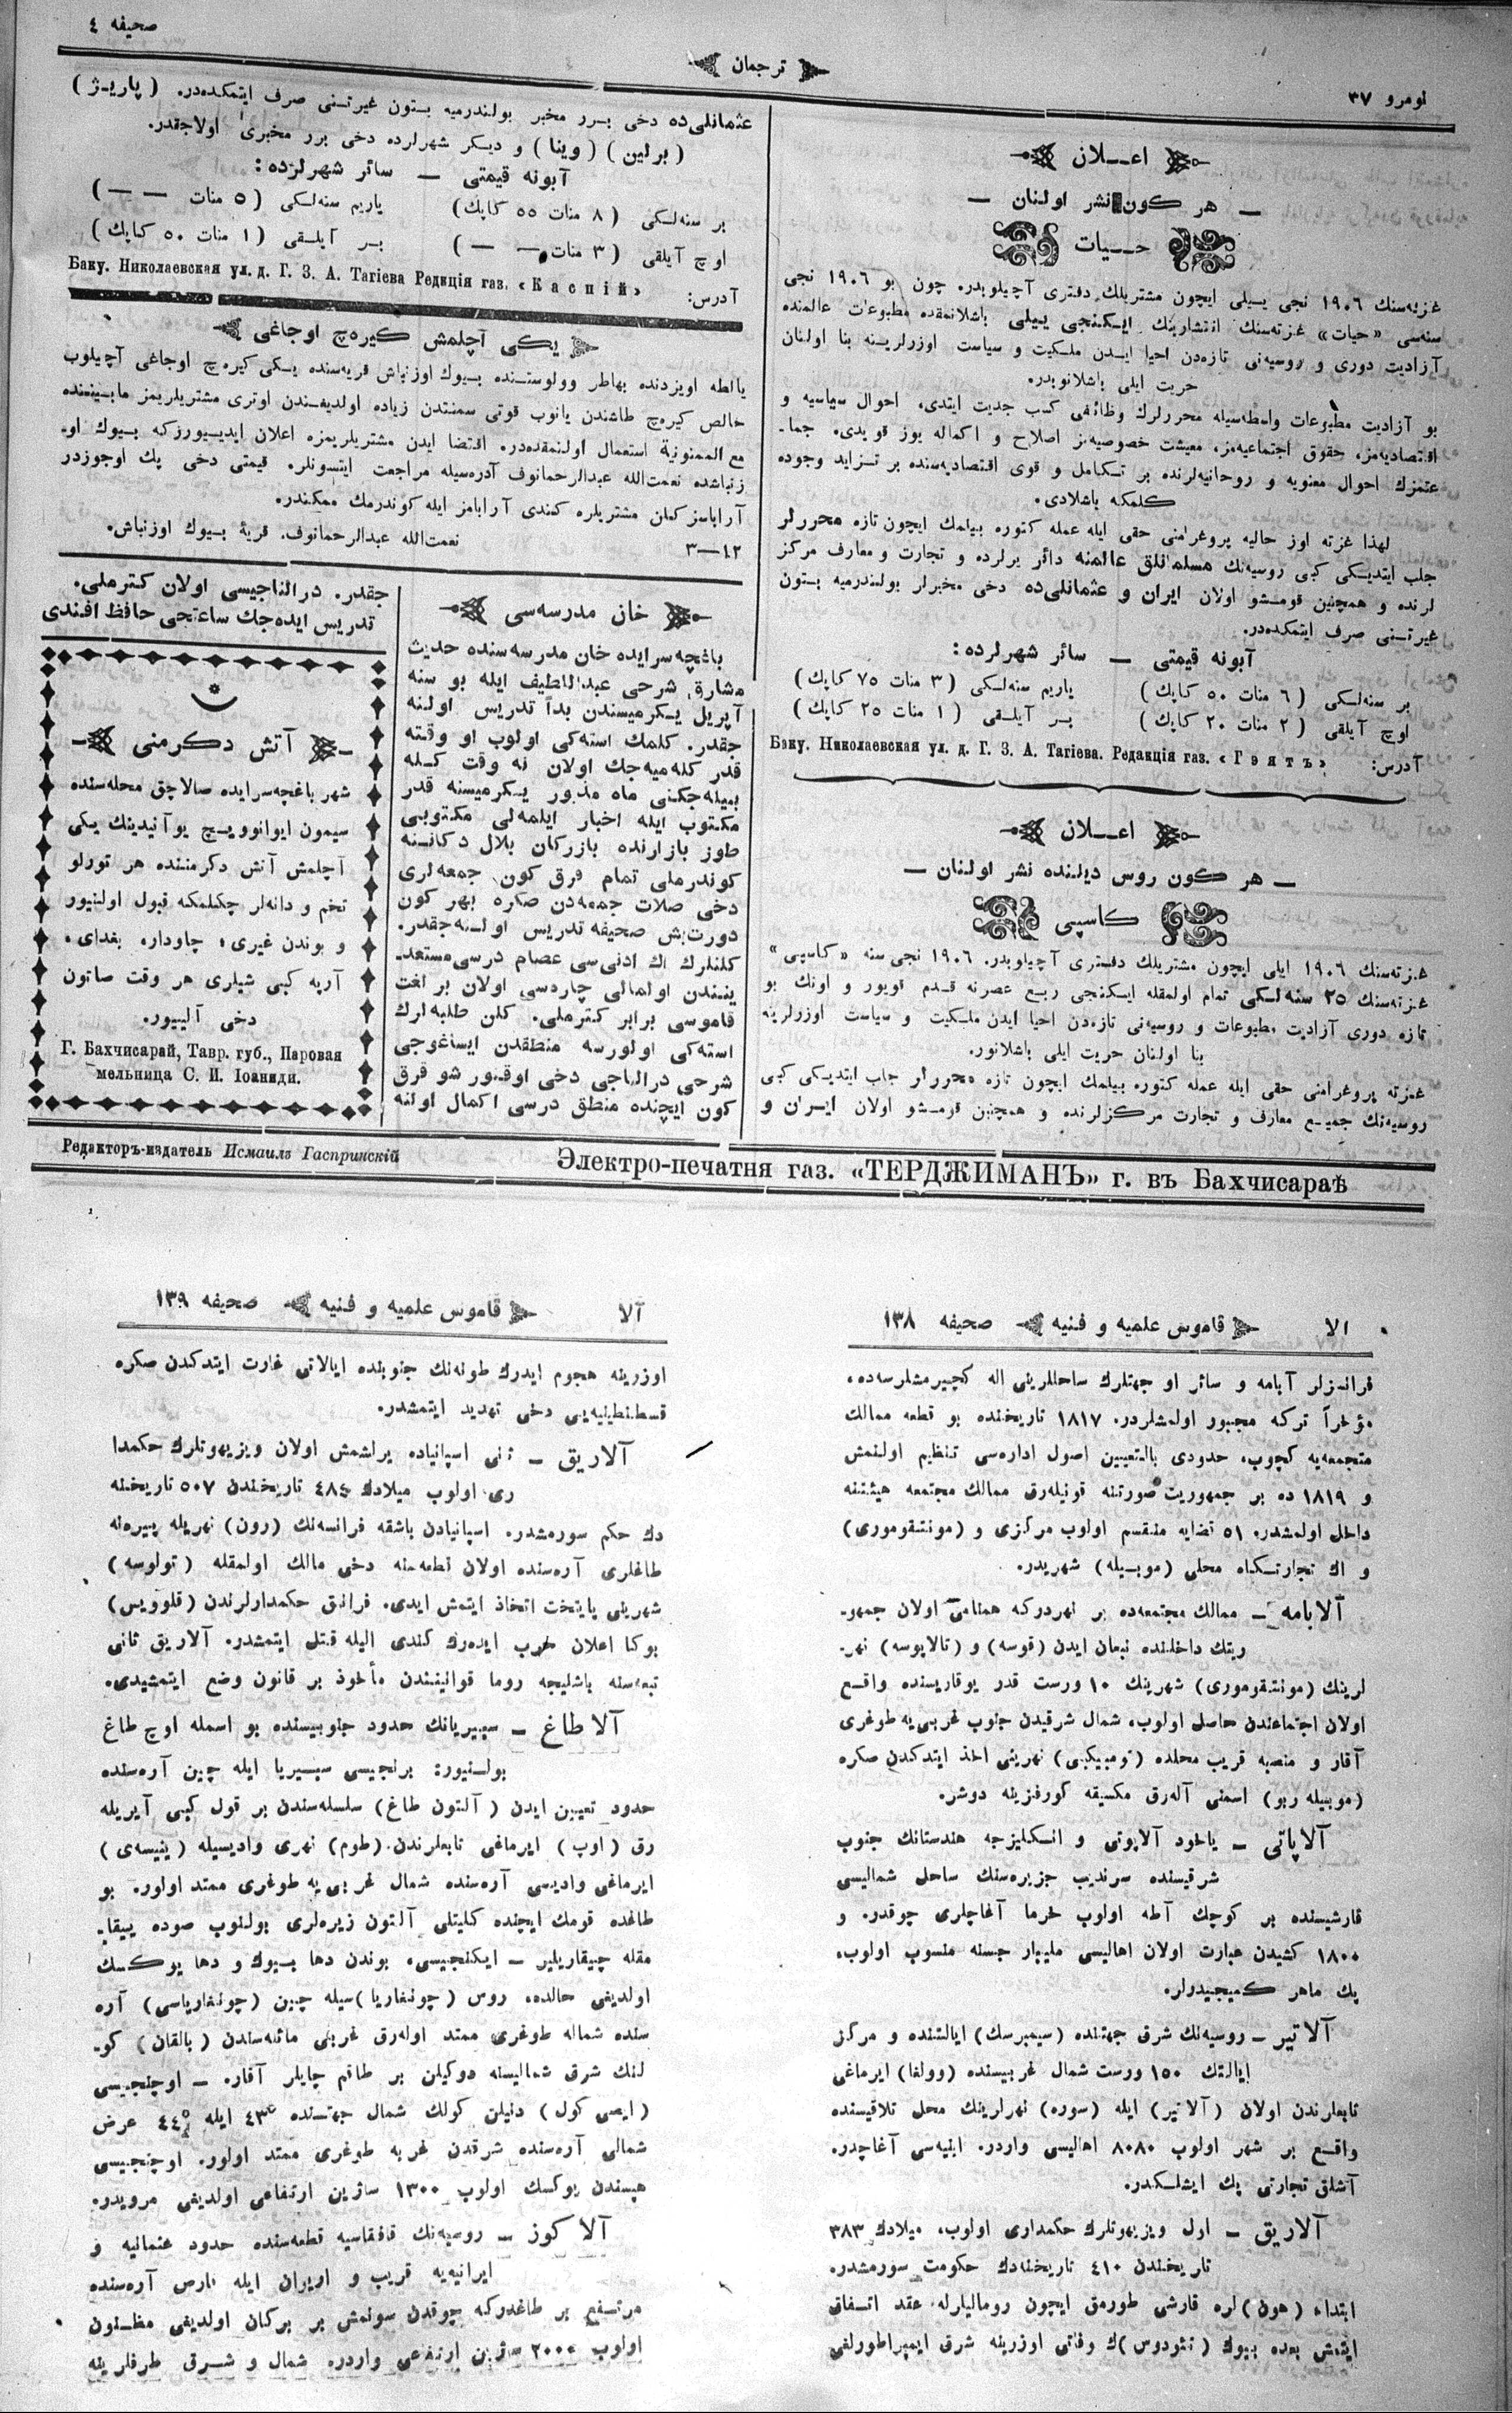 نومرو ٣٧
ترجمان
صحیفه ٤
اعـلان
— هر كون نشر اولنان —
حـیات
غزته‌سنك ١٩٠٦ نجی ییلی ایچون مشتریلك دفتری آچیلوبدر. چون بو ١٩٠٦ نجی
سنه‌سی «حیات» غزته‌سنك انتشارینك ایكنجی ییلی باشلانمقده مطبوعات عالمنده
آزادیت دوری و روسیه‌نی تازه‌دن احیا ایدن ملكیت و سیاست اوزرلرینه بنا اولنان
حریت ایلی باشلانوبدر.
بو آزادیت مطبوعات واسطه‌سیله محررلرك وظائفی كسب جدیت ایتدی، احوال سیاسیه و
اقتصادیه‌مز، حقوق اجتماعیه‌مز، معیشت خصوصیه‌مز اصلاح و اكماله یوز قویدی. جما-
عتمزك احوال معنویه و روحانیه‌لرنده بر تكامل و قوی اقتصادیه‌سنده بر تزاید وجوده
كلمكه باشلادی.
لهذا غزته اوز حالیه پروغرامنی حقی ایله عمله كتوره بیلمك ایچون تازه محررلر
جلب ایتدیكی كبی روسیه‌نك مسلمانلق عالمنه دائر یرلرده و تجارت و معارف مركز
لرنده و همچنین قومشو اولان ایران و عثمانلی‌ده دخی مخبرلر بولندرمیه بتون
غیرتنی صرف ایتمكده‌در.
آبونه قیمتی — سائر شهرلرده:
بر سنه‌لكی (٦ منات ٥٠ كاپك) یاریم سنه‌لكی (٣ منات ٧٥ كاپك)
اوچ آیلقی (٢ منات ٢٠ كاپك) بـر آیلـقی (١ منات ٢٥ كاپك)
آدرس: Баку. Николаевская ул. д. Г. З. А. Тагіева. Редакція газ. «Гэятъ»
اعـلان
— هر كون روس دیلنده نشر اولنان —
كاسپی
غزته‌سنك ١٩٠٦ ایلی ایچون مشتریلك دفتری آچیلوبدر. ١٩٠٦ نجی سنه «كاسپی»
غزته‌سنك ٢٥ سنه‌لكی تمام اولمقله ایكنجی ربع عصرنه قدم قویور و اونك بو
تازه دوری آزادیت مطبوعات و روسیه‌نی تازه‌دن احیا ایدن ملكیت و سیاست اوزرلرینه
بنا اولنان حریت ایلی باشلانور.
غزته پروغرامنی حقی ایله عمله كتوره بیلمك ایچون تازه محررلر جلب ایتدیكی كبی
روسیه‌نك جمیع معارف و تجارت مركزلرنده و همچنین قومشو اولان ایران و
عثمانلی‌ده دخی بـرر مخبر بولندرمیه بـتون غیرتنی صرف ایتمكده‌در. (پاریژ)
(برلین) (وینا) و دیكر شهرلرده دخی برر مخبری اولاجقدر.
آبونه قیمتی — سائر شهرلرده:
بر سنه‌لكی (٨ منات ٥٥ كاپك) یاریم سنه‌لكی (٥ منات — —)
اوچ آیلقی (٣ منات — —) بـر آیلـقی (١ منات ٥٠ كاپك)
آدرس: Баку. Николаевская ул. д. Г. З. А. Тагіева Редкція газ. «Каспій»
یكی آچلمش كیره‌چ اوجاغی
یالطه اویزدنده بهاطر وولوستنده بیوك اوزنباش قریه‌سنده یكی كیره‌چ اوجاغی آچیلوب
خالص كیره‌چ طاشندن یانوب قوتی سمنتدن زیاده اولدیغندن اوتری مشتریلریمز مابیننده
مع الممنونیة استعمال اولنمقده‌در. اقتضا ایدن مشتریلریمزه اعلان ایدییورزكه بیوك او-
زنباشده نعمت‌الله عبدالرحمانوف آدره‌سیله مراجعت ایتسونلر. قیمتی دخی پك اوجوزدر
آراباسز كلان مشتریلره كندی آرابامز ایله كوندرمك ممكندر.
١٢—٣ نعمت‌الله عبدالرحمانوف. قریهٔ بیوك اوزنباش.
خان مدرسه‌سی
باغچه‌سرایده خان مدرسه‌سنده حدیث
مشارق شرحی عبداللطیف ایله بو سنه
آپریل یكرمیسندن بدأ تدریس اولنه
جقدر. كلمك استه‌كی اولوب او وقته
قدر كله‌میه‌جك اولان نه وقت كله
بیله‌جكنی ماه مذبور یكرمیسنه قدر
مكتوب ایله اخبار ایلمه‌لی مكتوبی
طوز بازارنده بازركان بلال دكاننه
كوندرملی تمام قرق كون، جمعه‌لری
دخی صلات جمعه‌دن صكره بهر كون
دورت‌بش صحیفه تدریس اولنه‌جقدر.
كلنلرك اك ادنی‌سی عصام درسی مستعد-
یندن اولمالی چاردسی اولان براغت
قاموسی برابر كترملی. كلن طلبه‌لرك
استه‌كی اولورسه منطقدن ایساغوجی
شرحی درالناجی دخی اوقنور شو قرق
كون ایچنده منطق درسی اكمال اولنه
جقدر. درالناجیسی اولان كترملی.
تدریس ایده‌جك ساعتجی حافظ افندی
آتش دكرمنی
شهر باغچه‌سرایده صالاچق محله‌سنده
سیمون ایوانوویـچ یوآنیدینك یكی
آچلمش آتش دكرمننده هر تورلو
تخم و دانه‌لر چكلمكه قبول اولنیور
و بوندن غیری، چاودار، بغدای،
آرپه كبی شیلری هر وقت صاتون
دخی آلییور.
Г. Бахчисарай, Тавр. губ., Паровая
мельница С. И. Іоаниди.
Редакторъ-издатель Исмаилъ Гаспринскій
Электро-печатня газ. «ТЕРДЖИМАНЪ» г. въ Бахчисараѣ
الا قاموس علمیه و فنیه صحیفه ١٣٨
فرانسزلر آبامه و سائر او جهتلرك ساحللرینی اله كچیرمشلرسه‌ده،
مؤخراً تركه مجبور اولمشلردر. ١٨١٧ تاریخنده بو قطعه ممالك
متجمعه‌یه كچوب، حدودی بالتعیین اصول اداره‌سی تنظیم اولنمش
و ١٨١٩ ده بر جمهوریت صورتنه قونیله‌رق ممالك مجتمعه هیئتنه
داخل اولمشدر. ٥١ قضایه منقسم اولوب مركزی و (مونتغوموری)
و اك تجارتكاه محلی (موبیله) شهریدر.
آلابامه — ممالك مجتمعه‌ده بر نهردركه همنامی اولان جمهو-
ریتك داخلنده نبعان ایدن (قوسه) و (تالاپوسه) نهر-
لرینك (مونتغوموری) شهرینك ١٠ ورست قدر یوقاریسنده واقـع
اولان اجتماعندن حاصل اولوب، شمال شرقیدن جنوب غربی‌یه طوغری
آقار و منصبه قریب محلده (تومبیكبی) نهرینی اخذ ایتدكدن صكره
(موبیله ریو) اسمنی آله‌رق مكسیقه كورفزینه دوشر.
آلاپاتی — یاخود آلاپوتی و انكلیزجه هندستانك جنوب
شرقیسنده سرندیب جزیره‌سنك ساحل شمالیسی
قارشیسنده بر كوچك آطه اولوب خرما آغاچلری چوقدر. و
١٨٠٠ كشیدن عبارت اولان اهالیسی ملیبار جنسنه منسوب اولوب،
پك ماهر كمیجیدرلر.
آلاتیر — روسیه‌نك شرق جهتنده (سیمبرسك) ایالتنده و مركز
ایالتك ١٥٠ ورست شمال غربیسنده (وولغا) ایرماغی
تابعلرندن اولان (آلاتیر) ایله (سوره) نهرلرینك محل تلاقیسنده
واقـع بر شهر اولوب ٨٠٨٠ اهالیسی واردر. ابنیه‌سی آغاچدر.
آشلق تجارتی پك ایشلكدر.
آلاریق — اول ویزیهوتلرك حكمداری اولوب، میلادك ٣٨٣
تاریخندن ٤١٠ تاریخنه‌دك حكومت سورمشدر.
ابتداء (هون)لره قارشی طورمق ایچون رومالیلرله عقد اتـفاق
ایتمش بعده بیوك (تئودوس)ك وفاتی اوزرینه شرق ایمپراطورلغی
آلا قاموس علمیه و فنیه صحیفه ١٣٩
اوزرینه هجوم ایدرك طونه‌نك جنوبنده ایالاتی غارت ایتدكدن صكره
قسطنطینیه‌یی دخی تهدید ایتمشدر.
آلاریق — ثنی اسپانیاده یرلشمش اولان ویزیهوتلرك حكمدا
ری اولوب میلادك ٤٨٤ تاریخندن ٥٠٧ تاریخنه
دك حكم سورمشدر. اسپانیادن باشقه فرانسه‌نك (رون) نهریله پیرەنه
طاغلری آره‌سنده اولان قطعه‌سنه دخی مالك اولمقله (تولوسه)
شهرینی پایتخت اتخاذ ایتمش ایدی. فرانق حكمدارلرندن (قلوویس)
بوكا اعلان حرب ایده‌رك كندی الیله قتل ایتمشدر. آلاریق ثانی
تبعه‌سنه باشلیجه روما قوانیندن مأخوذ بر قانون وضع ایتمشیدی.
آلا طاغ — سیبیریانك حدود جنوبیسنده بو اسمله اوچ طاغ
بولنیور: برنجیسی سیبیریا ایله چین آره‌سنده
حدود تعیین ایدن (آلتون طاغ) سلسله‌سندن بر قول كبی آیریله
رق (اوب) ایرماغی تابعلرندن (طوم) نهری وادیسیله (ینیسه‌ی)
ایرماغی وادیسی آره‌سنده شمال غربی‌یه طوغری ممتد اولور. بو
طاغده قومك ایچنده كلیتلی آلتون زیره‌لری بولنوب صوده ییقا-
مقله چیقاریلیر — ایكنجیسی، بوندن دها بیوك و دها یوكسك
اولدیغی حالده، روس (چونغاریا)سیله چین (چونغاریاسی) آره
سنده شماله طوغری ممتد اوله‌رق غربی مائله‌سندن (بالقان) كو-
لنك شرق شمالیسنه دوكیلن بر طاقم چایلر آقار. — اوچنجیسی
(ایصی كول) دنیلن كولك شمال جهتنده ٤٣ ایله ٤٤ عرض
شمالی آره‌سنده شرقدن غربه طوغری ممتد اولور. اوچنجیسی
هپسندن یوكسك اولوب ١٣٠٠ ساژین ارتفاعی اولدیغی مرویدر.
آلا كوز — روسیه‌نك قافقاسیه قطعه‌سنده حدود عثمانیه و
ایرانیه‌یه قریب و اویران ایله قارص آره‌سنده
مرتفع بر طاغدركه چوقدن سونمش بر بركان اولدیغی مظنون
اولوب ٢٠٠٠ ساژین ارتفاعی واردر. شمال و شـرق طرفلرینه